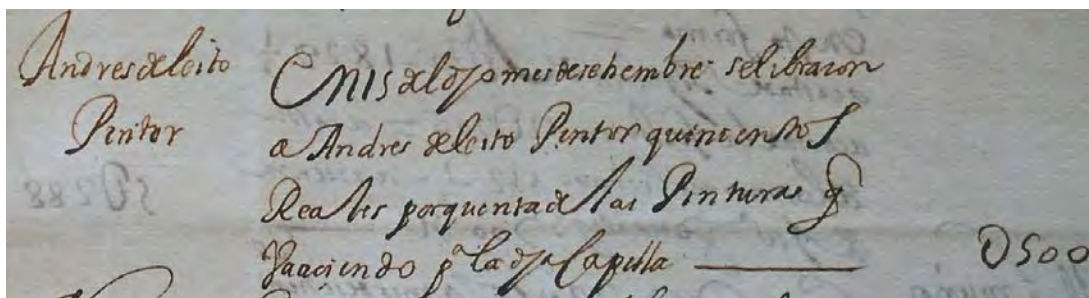 Andres deleito
Pintor
En 15 del dho mes de setiembre se libraron
a Andres deleito Pintor quinientos
Reales por quenta de las Pinturas q
Vaaciendo pª la dha Capilla — U500